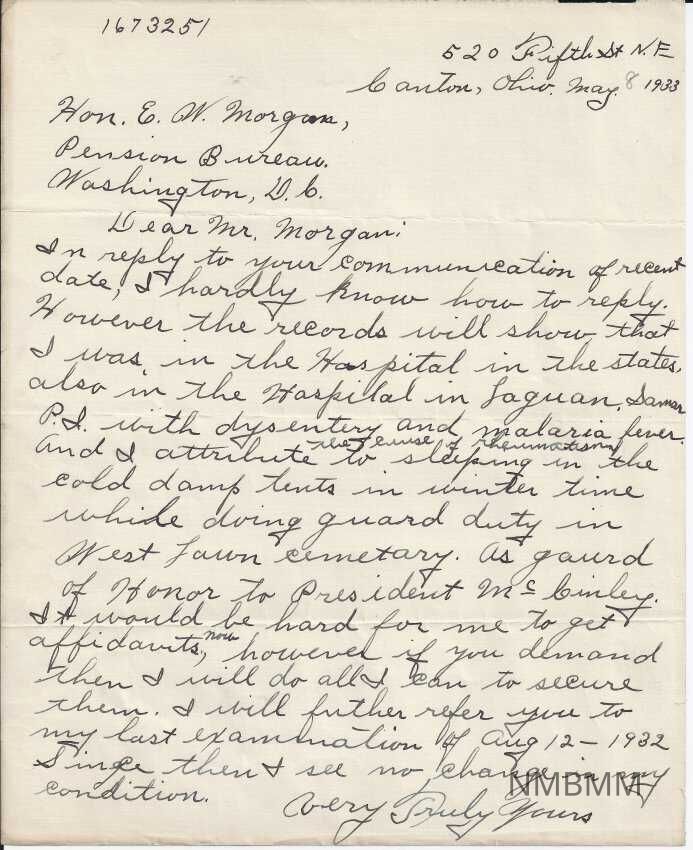 1673251
520 Fifth St N.E
Canton, Ohio. May. 8 1933
Hon. E. W. Morgan,
Pension Bureau.
Washington, D.C.
Dear Mr. Morgan:
In reply to your communication of recent
date, I hardly know how to reply.
However the records will show that
I was in the Hospital in the states,
also in the Hospital in Laguan, Samar
P.I. with dysentery and malaria fever.
And I attribute the cause of rheumatism to sleeping in the
cold damp tents in winter time
while doing guard duty in
West Lawn cemetary. As gaurd
of Honor to President McKinley.
It would be hard for me to get
affidavits, now however if you demand
then I will do all I can to secure
them. I will futher refer you to
my last examination of Aug 12 - 1932
Since then I see no change in my
condition.
Very Truly Yours
NMBMM